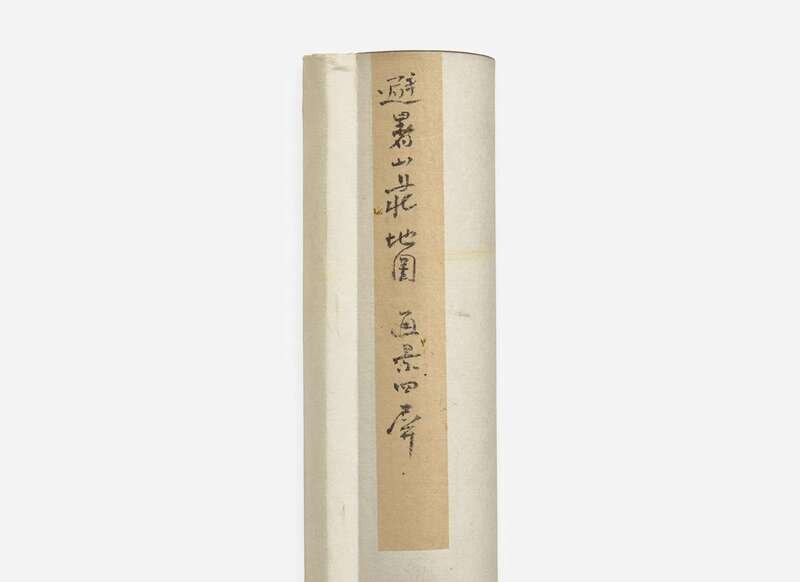 避暑山莊地圖 通景四屏